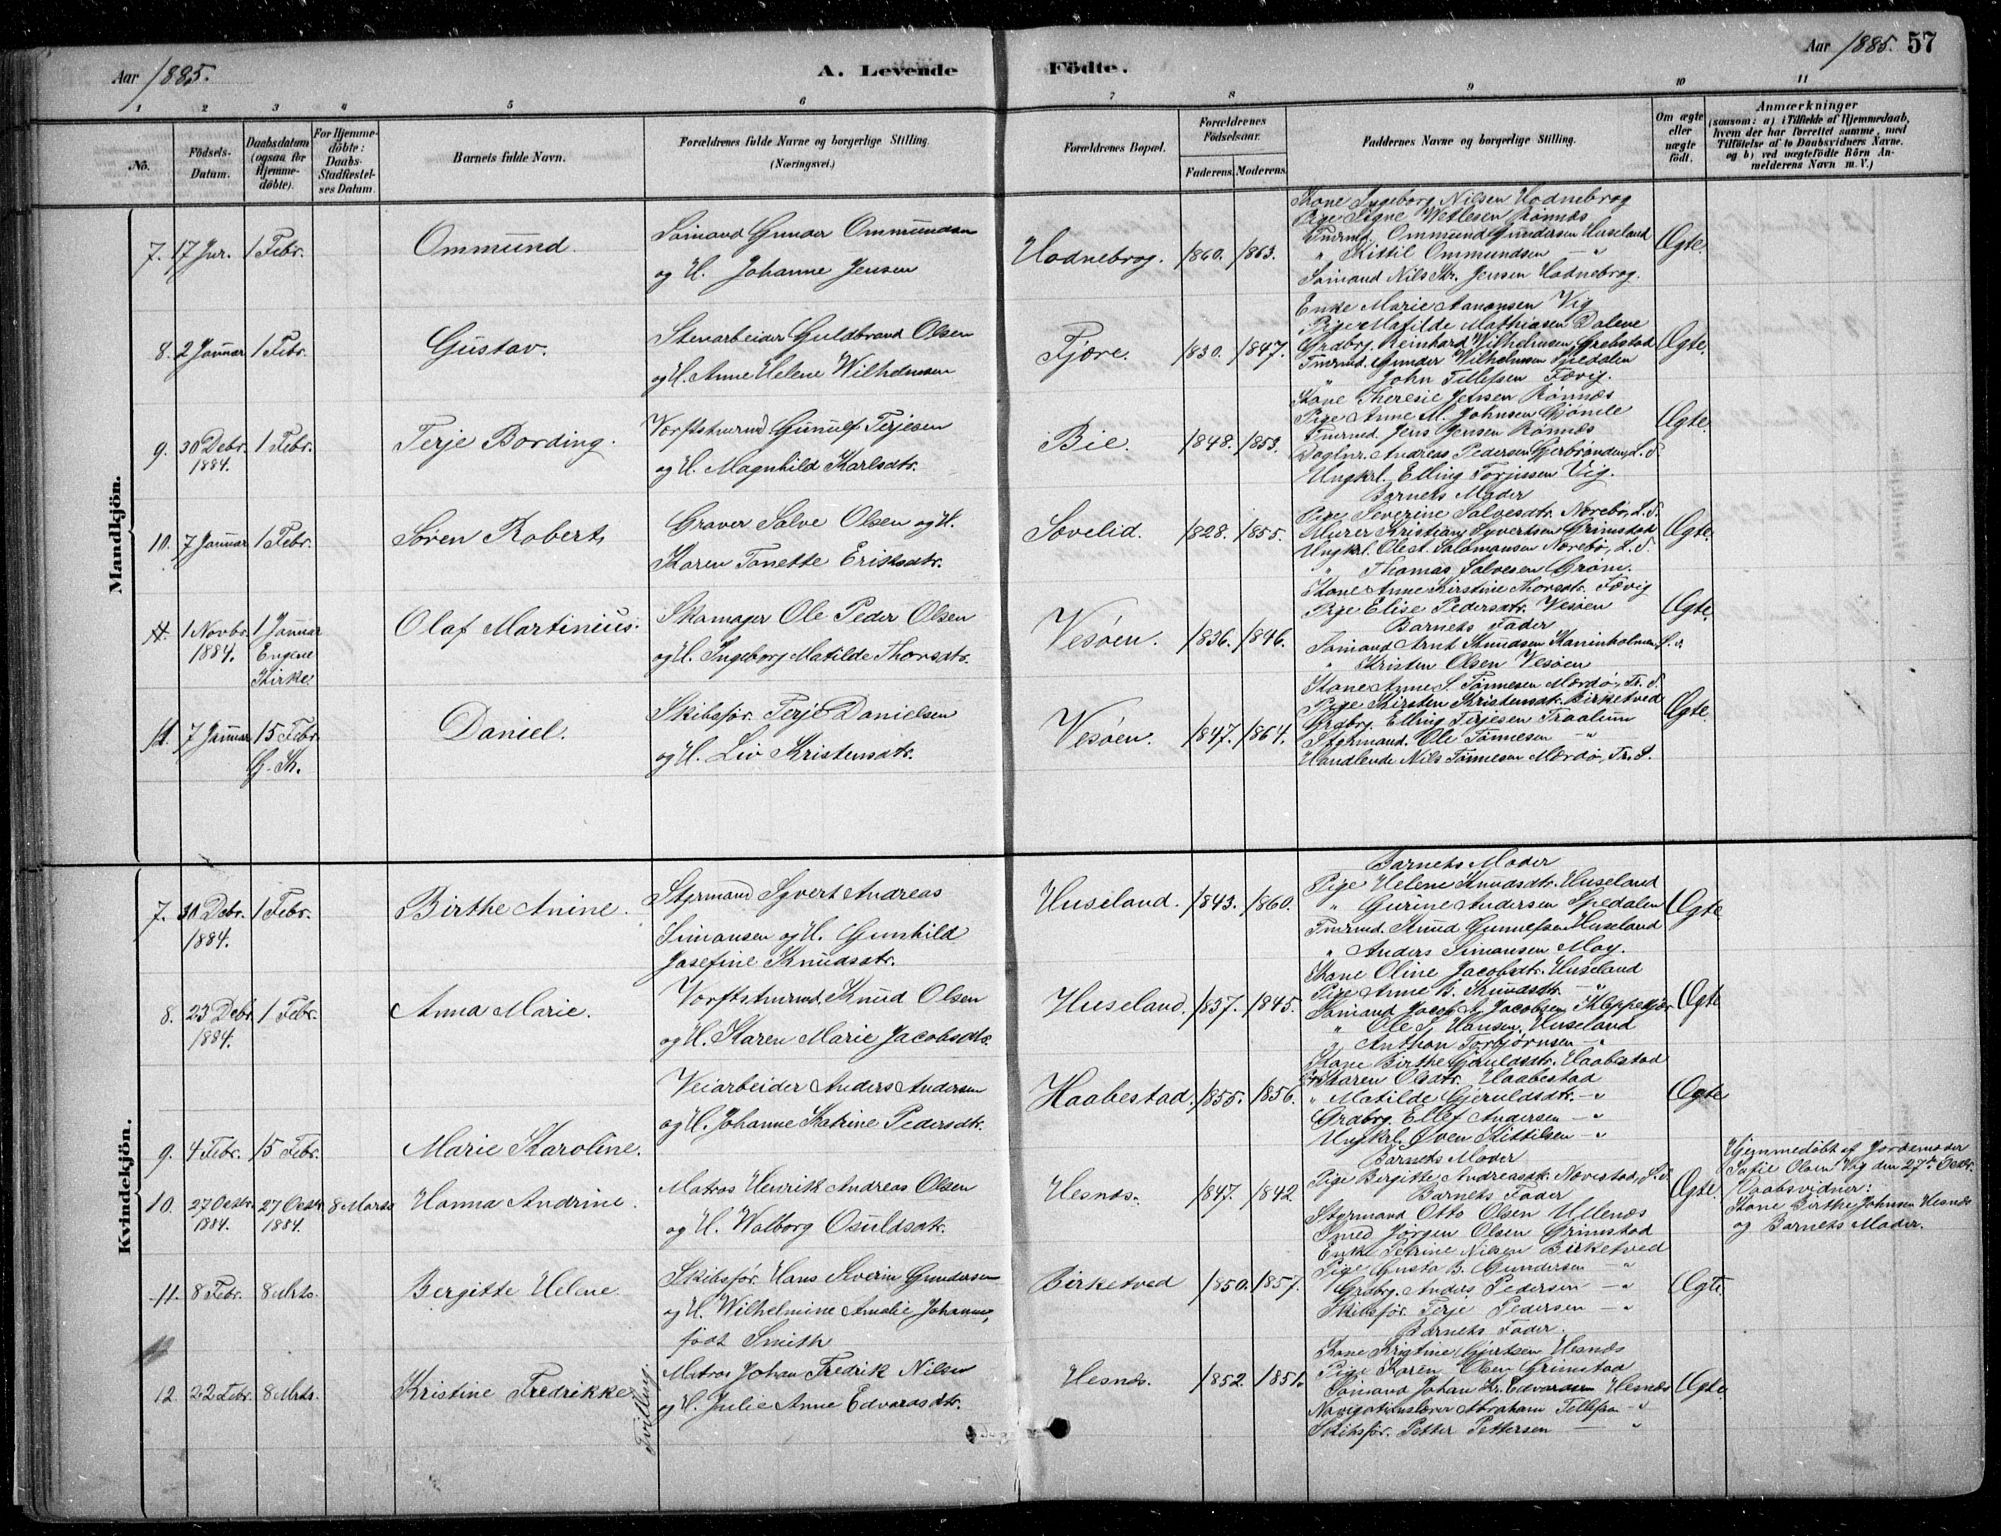 Aar 1885.
A. Levende Födte.
Aar 1885. 57
1 2 3 4 5 6 7 8 9 10 11
No.
Födsels-Datum.
Daabsdatum (ogsaa for Hjemmedöbte).
For Hjemmedöbte: Daabs-Stadfæstelses Datum.
Barnets fulde Navn.
Forældrenes fulde Navne og borgerlige Stilling.
(Næringsvei.)
Forældrenes Bopæl.
Forældrenes Födselsaar.
Faderens. Moderens.
Faddernes Navne og borgerlige Stilling.
Om ægte eller uægte födt.
Anmærkninger
(saasom: a) i Tilfælde af Hjemmedaab, hvem der har forrettet samme, med Tilföielse af to Daabsvidners Navne. og b) ved uægtefödte Börn Anmelderens Navn m. V.)
Mandkjön.
7. 17 Jnr. 1 Febr. Ommund. Sømand Gunder Ommundsen
og H. Johanne Jensen
Hodnebrog. 1860. 1863.
Kone Ingeborg Nilsen Hodnebrog
Pige Signe Wetlesen Rønnes
Tmrmd. Ommund Gundersen Huseland
" Kittil Ommundsen —"
Sømand Nils Kr. Jensen Hodnebrog.
Ægte.
8. 2 Januar 1 Febr. Gustav. Stenarbeider Guldbrand Olsen
og H. Anne Helene Wilhelmsen
Fjære. 1830. 1847.
Enke Marie Aanonsen Vig
Pige Matilde Mathiasen Dalene
Grdbrg. Reinhard Wilhelmsen Grebstad
Tmrmd. Gunder Wilhelmsen Spedalen
" John Tellefsen Fævig.
Ægte.
9. 30 Debr. 1884. 1 Febr. Terje Bording. Værftstmrmd Gunulf Terjesen
og H. Magnhild Karlsdtr.
Bie. 1848. 1853.
Kone Theresie Jensen Rønnes
Pige Anne M. Johnsen Gjømle
Tmrmd. Jens Jensen Rønnes
Daglnr. Andreas Pedersen Gjerbrønden, L. S.
Ungkrl. Elling Torjussen Vig.
Ægte.
10. 7 Januar 1 Febr. Søren Robert, Graver Salve Olsen og H.
Karen Tonette Eriksdtr.
Sovelid. 1828. 1855.
Barnets Moder
Pige Severine Salvesdtr. Nørebø, L. S.
Murer Kristian Syvertsen Grimstad
Ungkrl. Ole St. Salomonsen Nørebø, L. S.
" Thomas Salvesen Grøm.
Ægte.
11. 1 Novbr. 1884. 1 Januar Engene Kirke. Olaf Martinius. Skomager Ole Peder Olsen
og H. Ingeborg Matilde Thorsdtr.
Vesøen. 1836. 1846.
Kone Anne Kirstine Thorsdtr. Fævig
Pige Elise Pedersdtr. Vesøen
Barnets Fader
Sømand Arnt Knudsen Kaninholmen
" Kristen Olsen Vesøen
Ægte.
12. 7 Januar 15 Febr. G. K. Daniel. Skibsfør. Terje Danielsen
og H. Liv Kristensdtr.
Vesøen. 1847. 1864.
Kone Anne S. Tønnesen Mærdø, Tr. S.
Pige Kirsten Kristensdtr. Birketved
Grdbrg. Elling Terjesen Traalum
Styrmand. Ole Tønnesen —"
Handlende Nils Tønnesen Mærdø, Tr. S.
Ægte.
Kvindekjön.
7. 30 Debr. 1884. 1 Febr. Birthe Anine. Styrmand Syvert Andreas
Simonsen og H. Gunhild
Josefine Knudsdtr.
Huseland. 1843. 1860.
Barnets Moder
Pige Helene Knudsdtr. Huseland
" Gurine Andersen Spedalen
Tmrmd. Knud Gunnefsen Huseland
" Anders Simonsen Moy.
Ægte
8. 23 Debr. 1884. 1 Febr. Anna Marie. Værftstmrmd. Knud Olsen
og H. Karen Marie Jacobsdtr.
Huseland. 1837. 1845.
Kone Oline Jacobsdtr. Huseland
Pige Anne B. Knudsdtr. —"
Sømand Jacob A. Jacobsen Kleppekjær
" Ole S. Hansen, Huseland
" Anthon Torbjørnsen —"
Ægte
9. 4 Febr. 15 Febr. Marie Karoline. Veiarbeider Anders Andersen
og H. Johanne Katrine Pedersdtr.
Haabestad. 1855. 1856.
Kone Birthe Gjeruldsdtr. Haabestad
Karen Olsdtr. Haabestad
" Matilde Gjeruldsdtr. —"
Grdbrg. Ellef Andersen —"
Ungkrl. Even Kittilsen —"
Ægte
10. 27 Octbr. 1884. 27 Octbr. 1884. 8 Marts Hanna Andrine. Matros Henrik Andreas Olsen
og H. Walborg Osuldsdtr.
Hesnes. 1847. 1842.
Barnets Moder
Pige Birgitte Andreasdtr. Novestad, L. S.
Barnets Fader
Styrmand Otto Olsen Uelenes
Smed Jørgen Olsen Grimstad
Ægte.
Hjemmedøbt af Jordemoder
Sofie Olsen Vig den 27de Octbr.
Daabsvidner:
Kone Birthe Johnsen Hesnes
og Barnets Moder.
11. 8 Febr. 8 Mrts. Bergitte Helene. Skibsfør. Hans Severin Gundersen
og H. Wilhelmine Amalie Johanne,
født Smith
Birketved 1850. 1857.
Enke Petrine Nilsen Birketved
Pige Gusta B. Gundersen —"
Grdbrg. Anders Pedersen —"
Skibsfør. Terje Pedersen —"
Barnets Fader.
Ægte.
12. 22 Febr. 8 Mrts. Kristine Fredrikke Tvilling. Matros Johan Fredrik Nilsen
og H. Julie Anne Edvardsdtr.
Hesnes. 1852. 1851.
Kone Kristine Gjertsen Hesnes
Pige Karen Olsen Grimstad
Sømand Johan Kr. Edvardsen Hesnes
Navigationslærer Abraham Tellefsen —"
Skibsfør. Petter Pettersen —"
Ægte.